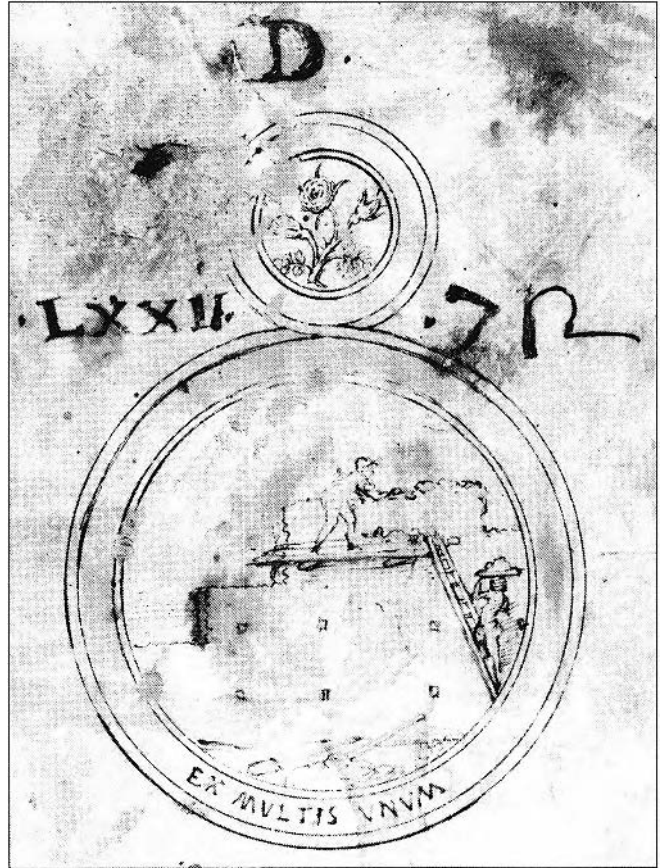 D.
.LXXII.
.7 R
EX MVLTIS VNVM